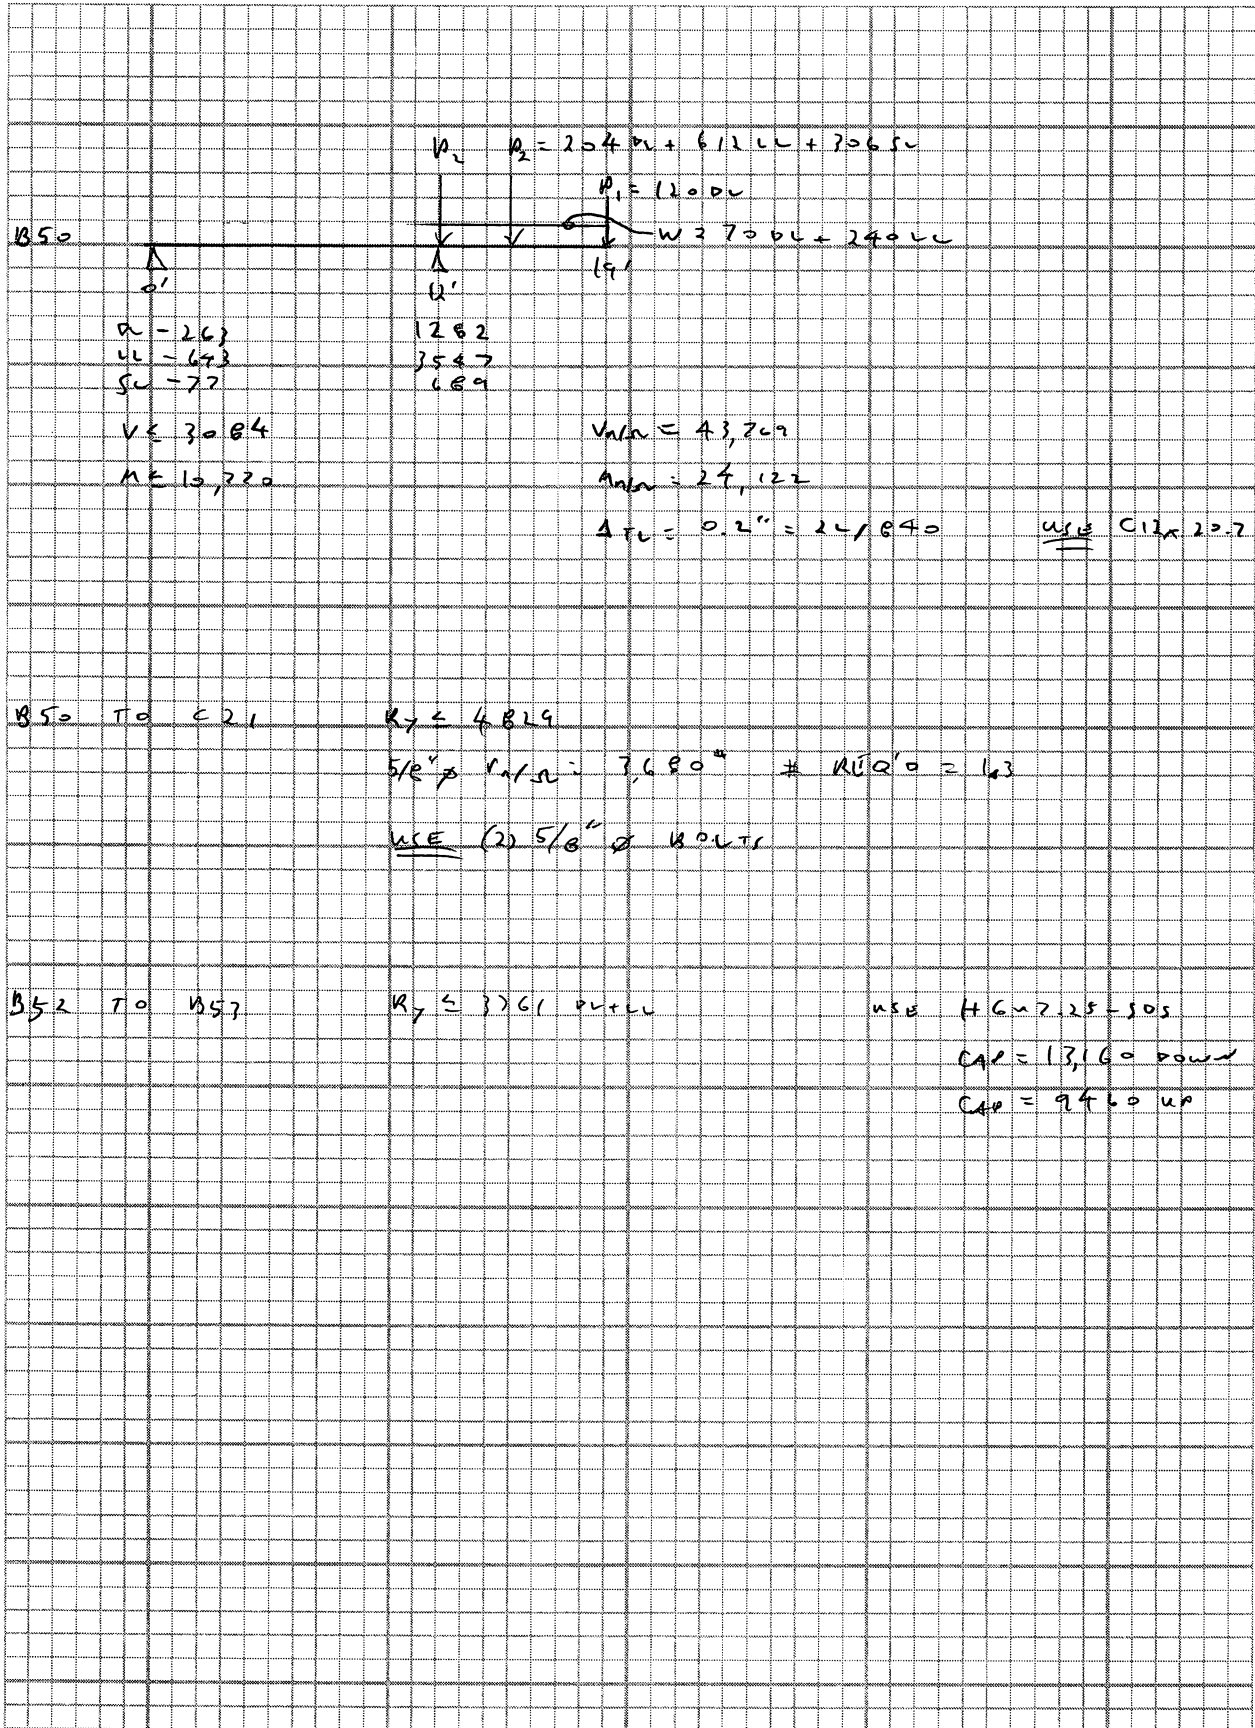 P2 P2 = 204 DL + 612 LL + 306 SL
P1 = 120 DL
B50 W = 70 DL + 240 LL
0' 12' 19'
DL -263 1282
LL -643 3547
SL -77 689
V ≤ 3084 Vn/Ω = 43,769
M ≤ Mn/Ω = 24,122
Δ TL = 0.2" = 2L/840 USE C12x20.7
B50 TO C21 Ry ≤ 4829
5/8"ø rn/Ω = 3,680# # REQ'D = 1.3
USE (2) 5/8" ø BOLTS
B52 TO B53 Ry ≤ 3761 DL+LL USE HGU7.25-SDS
CAP = 13,160 DOWN
CAP = 9460 UP